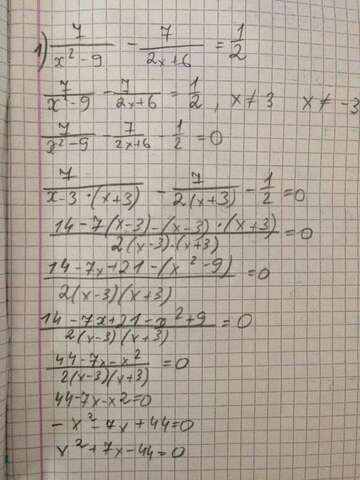 1) 7/(x²-9) - 7/(2x+6) = 1/2
7/(x²-9) - 7/(2x+6) = 1/2 , x≠3 x≠-3
7/(x²-9) - 7/(2x+6) - 1/2 = 0
7/(x-3·(x+3)) - 7/(2(x+3)) - 1/2 = 0
(14-7(x-3)-(x-3)·(x+3))/(2(x-3)·(x+3)) = 0
(14-7x+21-(x²-9))/(2(x-3)(x+3)) = 0
(14-7x+21-x²+9)/(2(x-3)(x+3)) = 0
(44-7x-x²)/(2(x-3)(x+3)) = 0
44-7x-x2=0
-x²-7x+44=0
x²+7x-44=0